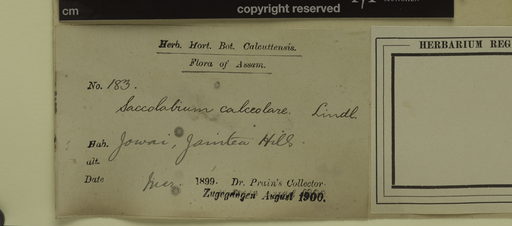 cm
copyright reserved
Herb. Hort. Bot. Calcuttensis.
Flora of Assam.
No. 183.
Saccolabium calceolare. Lindl.
Hab. Jowai, Jaintea Hills.
alt.
Date 1899. Dr. Prain's Collector.
Zugegangen August 1900.
HERBARIUM REG